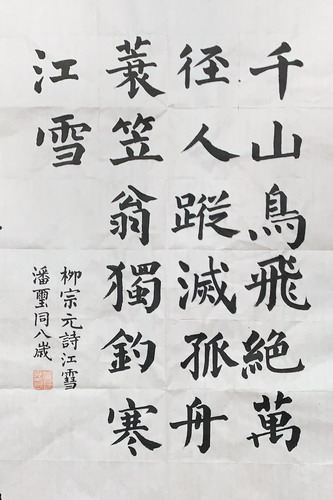 千山鳥飛絕萬
径人蹤滅孤舟
蓑笠翁獨釣寒
江雪
柳宗元詩江雪
潘璽同八歲